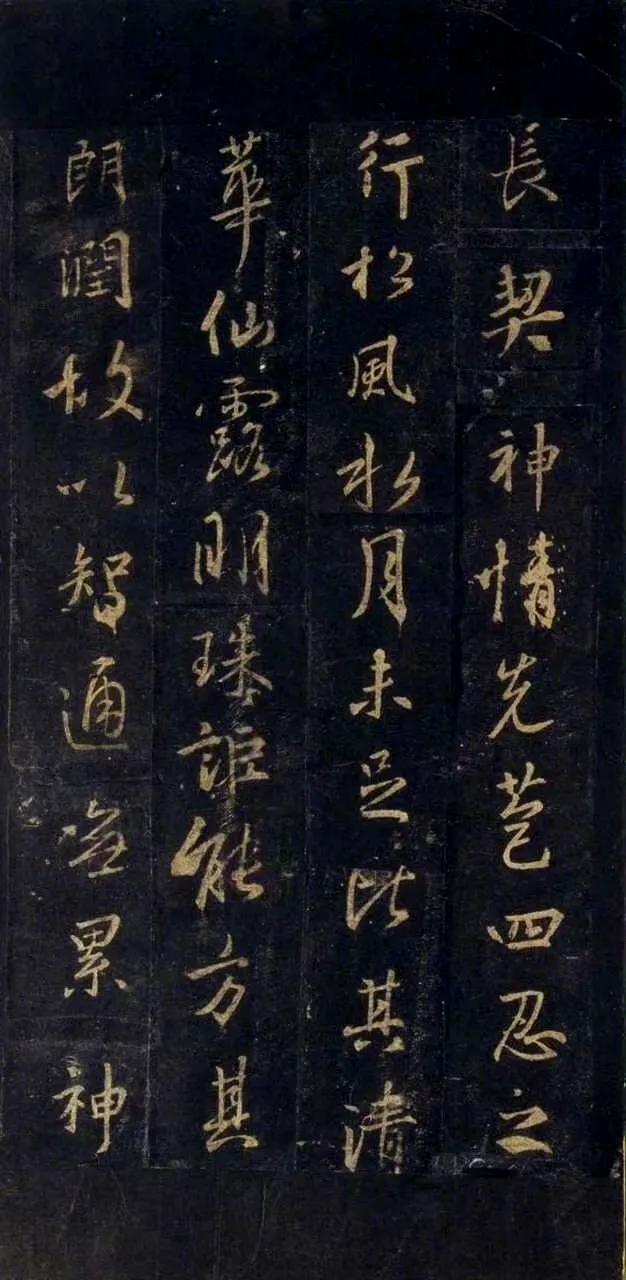 長契神情先苞四忍之
行松風水月未足比其清
華仙露明珠詎能方其
朗潤故以智通無累神